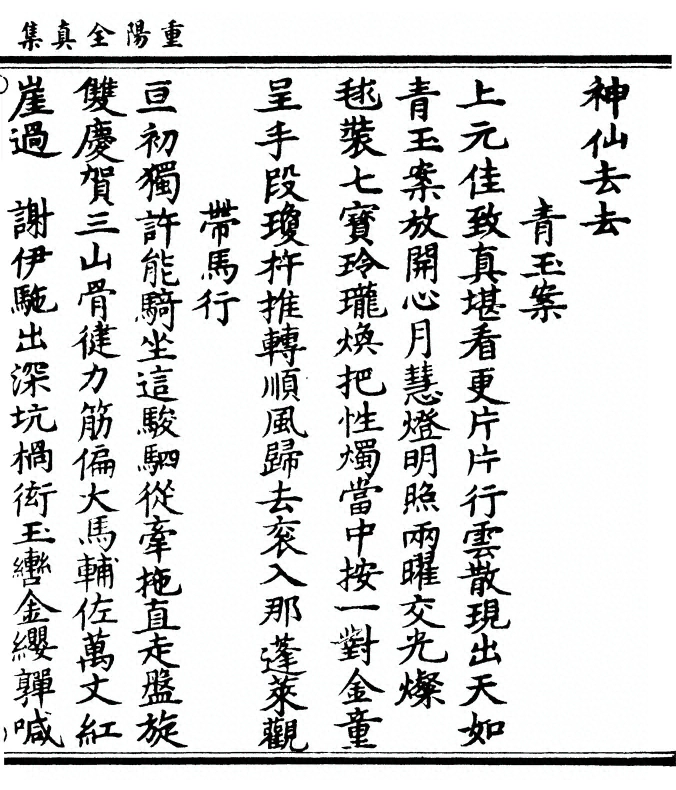 重陽全真集
神仙去去
青玉案
上元佳致真堪看更片片行雲散現出天如
青玉案放開心月慧燈明照兩曜交光燦
毬裝七寶玲瓏煥把性燭當中按一對金童
呈手段瓊杵推轉順風歸去衮入那蓬萊觀
帶馬行
亘初獨許能騎坐這駿駟從牽拖直走盤旋
雙慶賀三山骨健力筋偏大馬輔佐萬丈紅
崖過　謝伊馳出深坑橺銜玉轡金纓鞸喊